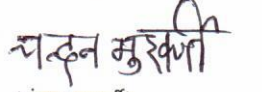 चन्दन मुखर्जी